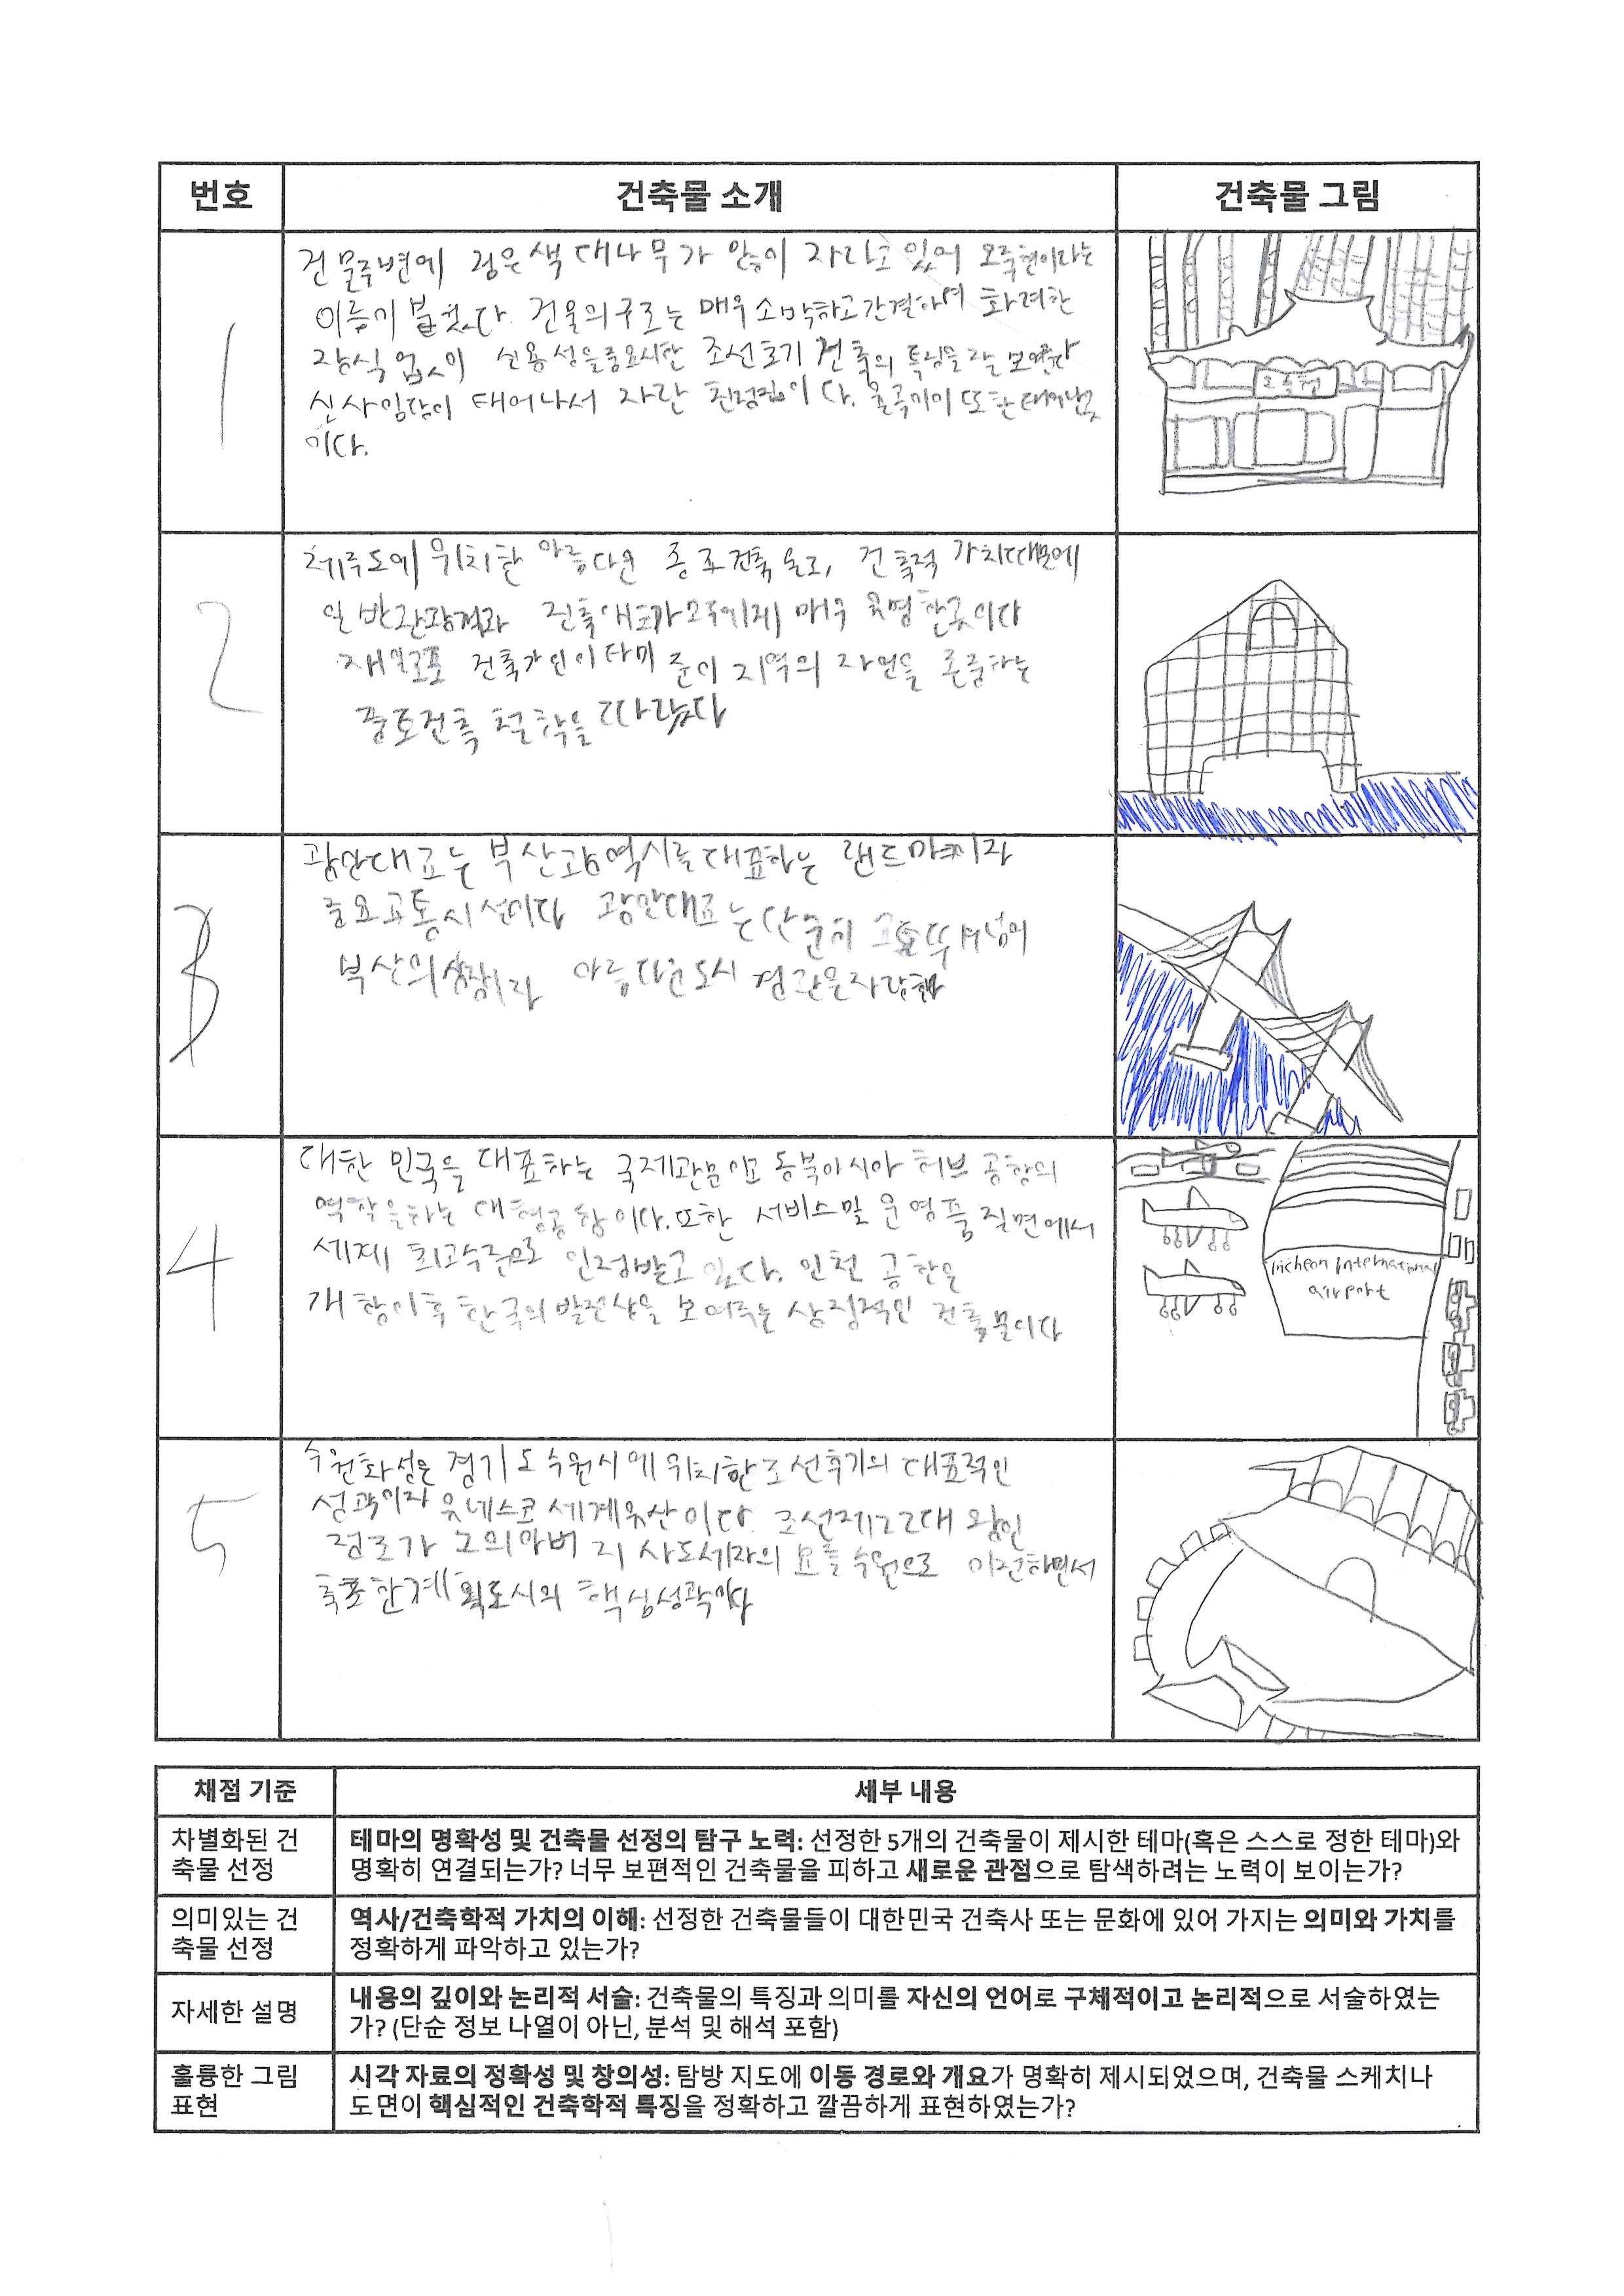 번호 건축물 소개 건축물 그림
1
건물주변에 검은색 대나무가 많이 자라고 있어 오죽헌이라는
이름이 붙었다. 건물의구조는 매우소박하고간결하며 화려한
장식 없이 실용성을중요시한 조선초기 건축의 특징을 잘 보여준다
신사임당이 태어나서 자란 친정집이다. 율곡이이 또한 태어난곳
이다.
오죽헌
2
제주도에 위치한 아름다운 종교건축물로, 건축적 가치때문에
일반관광객과 건축 모두에게 매우 유명한곳이다
재일교포 건축가인이타미 준이 지역의 자연을 존중하는
풍토건축 철학을 따랐다
3
광안대교는 부산광역시를대표하는 랜드마크이자
중요교통시설이다 광안대교는단순히 교통뿐 아니라
부산의상징이자 아름다운도시 경관을자랑한다
4
대한민국을 대표하는 국제관문이고 동북아시아 허브 공항의
역할을하는 대형공항이다. 또한 서비스및 운영품질면에서
세계 최고수준으로 인정받고 있다. 인천 공항은
개항이후 한국의발전상을 보여주는 상징적인 건축물이다
incheon international
airport
5
수원화성은 경기도수원시에위치한조선후기의 대표적인
성곽이자 유네스코 세계유산이다. 조선제22대 왕인
정조가 그의아버지 사도세자의 묘를수원으로 이전하면서
축조한계획도시의 핵심성곽이다
채점 기준 세부 내용
차별화된 건
축물 선정
테마의 명확성 및 건축물 선정의 탐구 노력: 선정한 5개의 건축물이 제시한 테마(혹은 스스로 정한 테마)와
명확히 연결되는가? 너무 보편적인 건축물을 피하고 새로운 관점으로 탐색하려는 노력이 보이는가?
의미있는 건
축물 선정
역사/건축학적 가치의 이해: 선정한 건축물들이 대한민국 건축사 또는 문화에 있어 가지는 의미와 가치를
정확하게 파악하고 있는가?
자세한 설명
내용의 깊이와 논리적 서술: 건축물의 특징과 의미를 자신의 언어로 구체적이고 논리적으로 서술하였는
가? (단순 정보 나열이 아닌, 분석 및 해석 포함)
훌륭한 그림
표현
시각 자료의 정확성 및 창의성: 탐방 지도에 이동 경로와 개요가 명확히 제시되었으며, 건축물 스케치나
도면이 핵심적인 건축학적 특징을 정확하고 깔끔하게 표현하였는가?